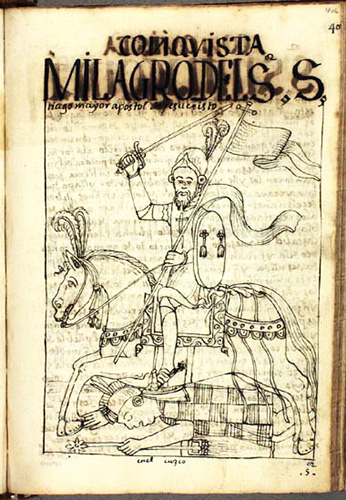 406
40
CONQVISTA
MILAGRODELS, S,
tiago mayor apostol de jesucristo
en el cuzco